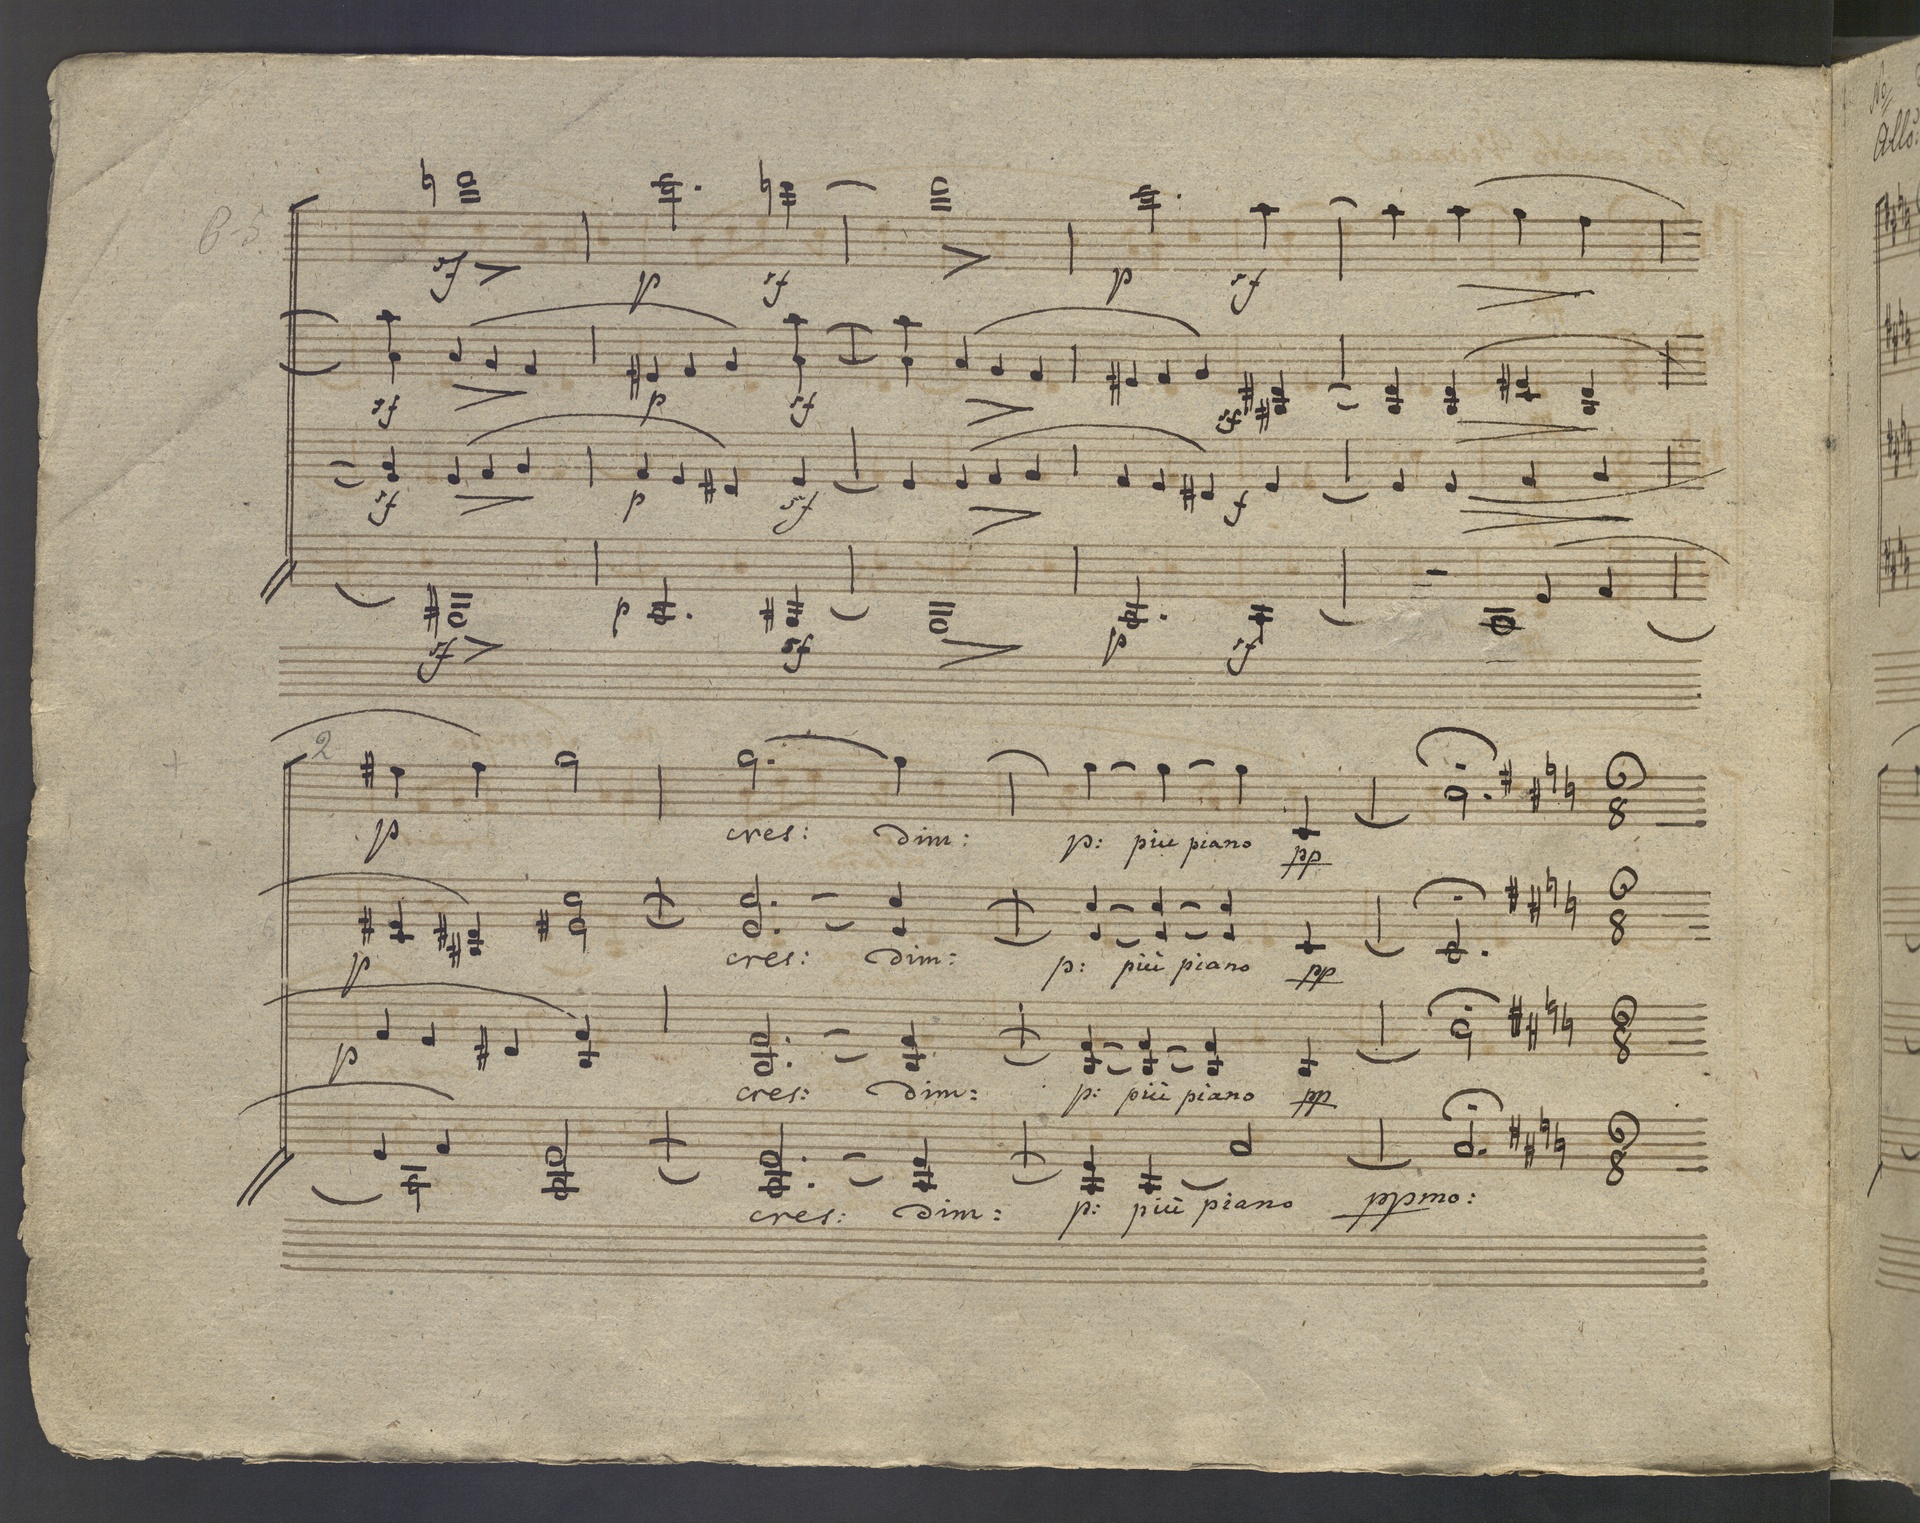 6-5
sf p sf p sf
sf p sf sf
sf p sf f
sf p sf p sf
2
p cres: dim: p: più piano pp
p cres: dim: p: più piano pp
p cres: dim: p: più piano pp
cres: dim: p: più piano ppmo:
6
8
6
8
6
8
6
8
No
Allo: